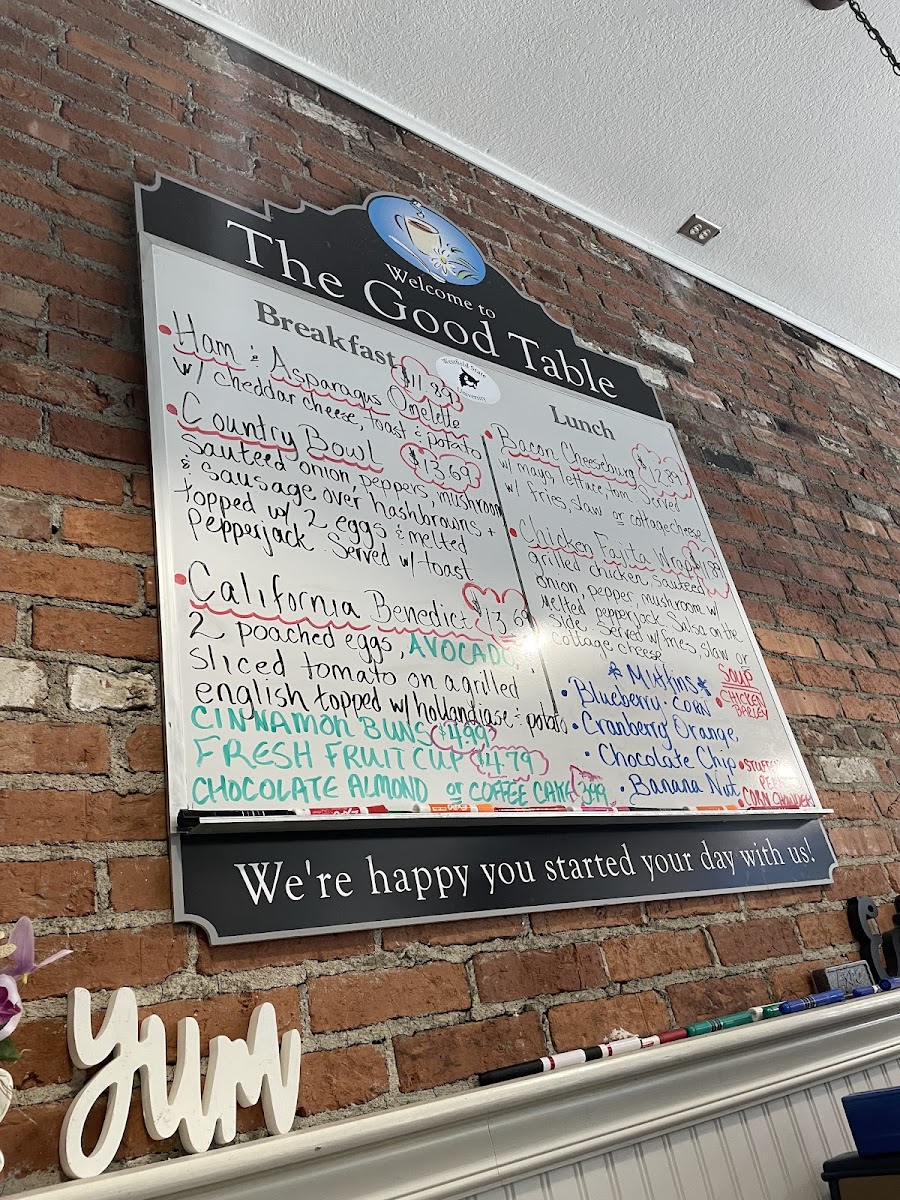 Welcome to
The Good Table
Westfield State
University
Breakfast
• Ham & Asparagus Omelette $11.89
w/ cheddar cheese, toast & potato
• Country Bowl $13.69
Sauteed onion, peppers, mushroom
& Sausage over hashbrowns +
topped w/ 2 eggs & melted
Pepperjack. Served w/ toast
• California Benedict $13.69
2 poached eggs, AVOCADO,
Sliced tomato on a grilled
english topped w/ hollandiase & potato
CINNAMON BUNS $4.99
FRESH FRUIT CUP $4.79
CHOCOLATE ALMOND or COFFEE CAKE 3.99
Lunch
• Bacon Cheeseburg $12.89
w/ mayo, lettuce, tom. Served
w/ fries, slaw or cottage cheese
• Chicken Fajita Wrap
grilled chicken, sauteed
onion, pepper, mushroom w/
melted pepperjack. Salsa on the
side. Served w/ fries, slaw or
cottage cheese
* Muffins *
• Blueberry • CORN
• Cranberry Orange
• Chocolate Chip
• Banana Nut
SOUP
• CHICKEN
BARLEY
• CORN CHOWDER
We're happy you started your day with us!
yum
EXPO